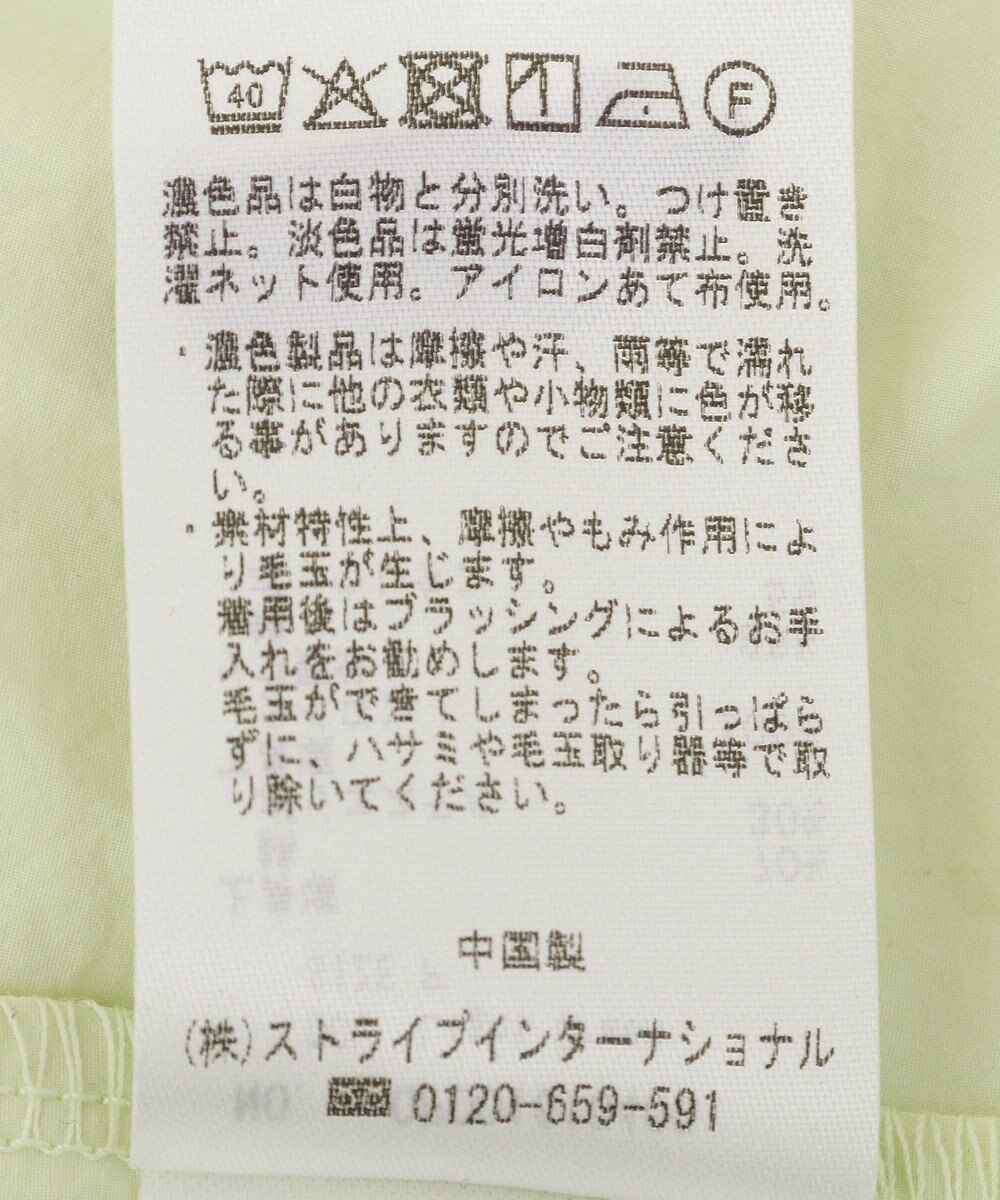 40
F
濃色品は白物と分別洗い。つけ置き
禁止。淡色品は蛍光増白剤禁止。洗
濯ネット使用。アイロンあて布使用。
・濃色製品は摩擦や汗、雨等で濡れ
た際に他の衣類や小物類に色が移
る事がありますのでご注意くださ
い。
・素材特性上、摩擦やもみ作用によ
り毛玉が生じます。
着用後はブラッシングによるお手
入れをお勧めします。
毛玉ができてしまったら引っぱら
ずに、ハサミや毛玉取り器等で取
り除いてください。
中国製
(株)ストライプインターナショナル
0120-659-591